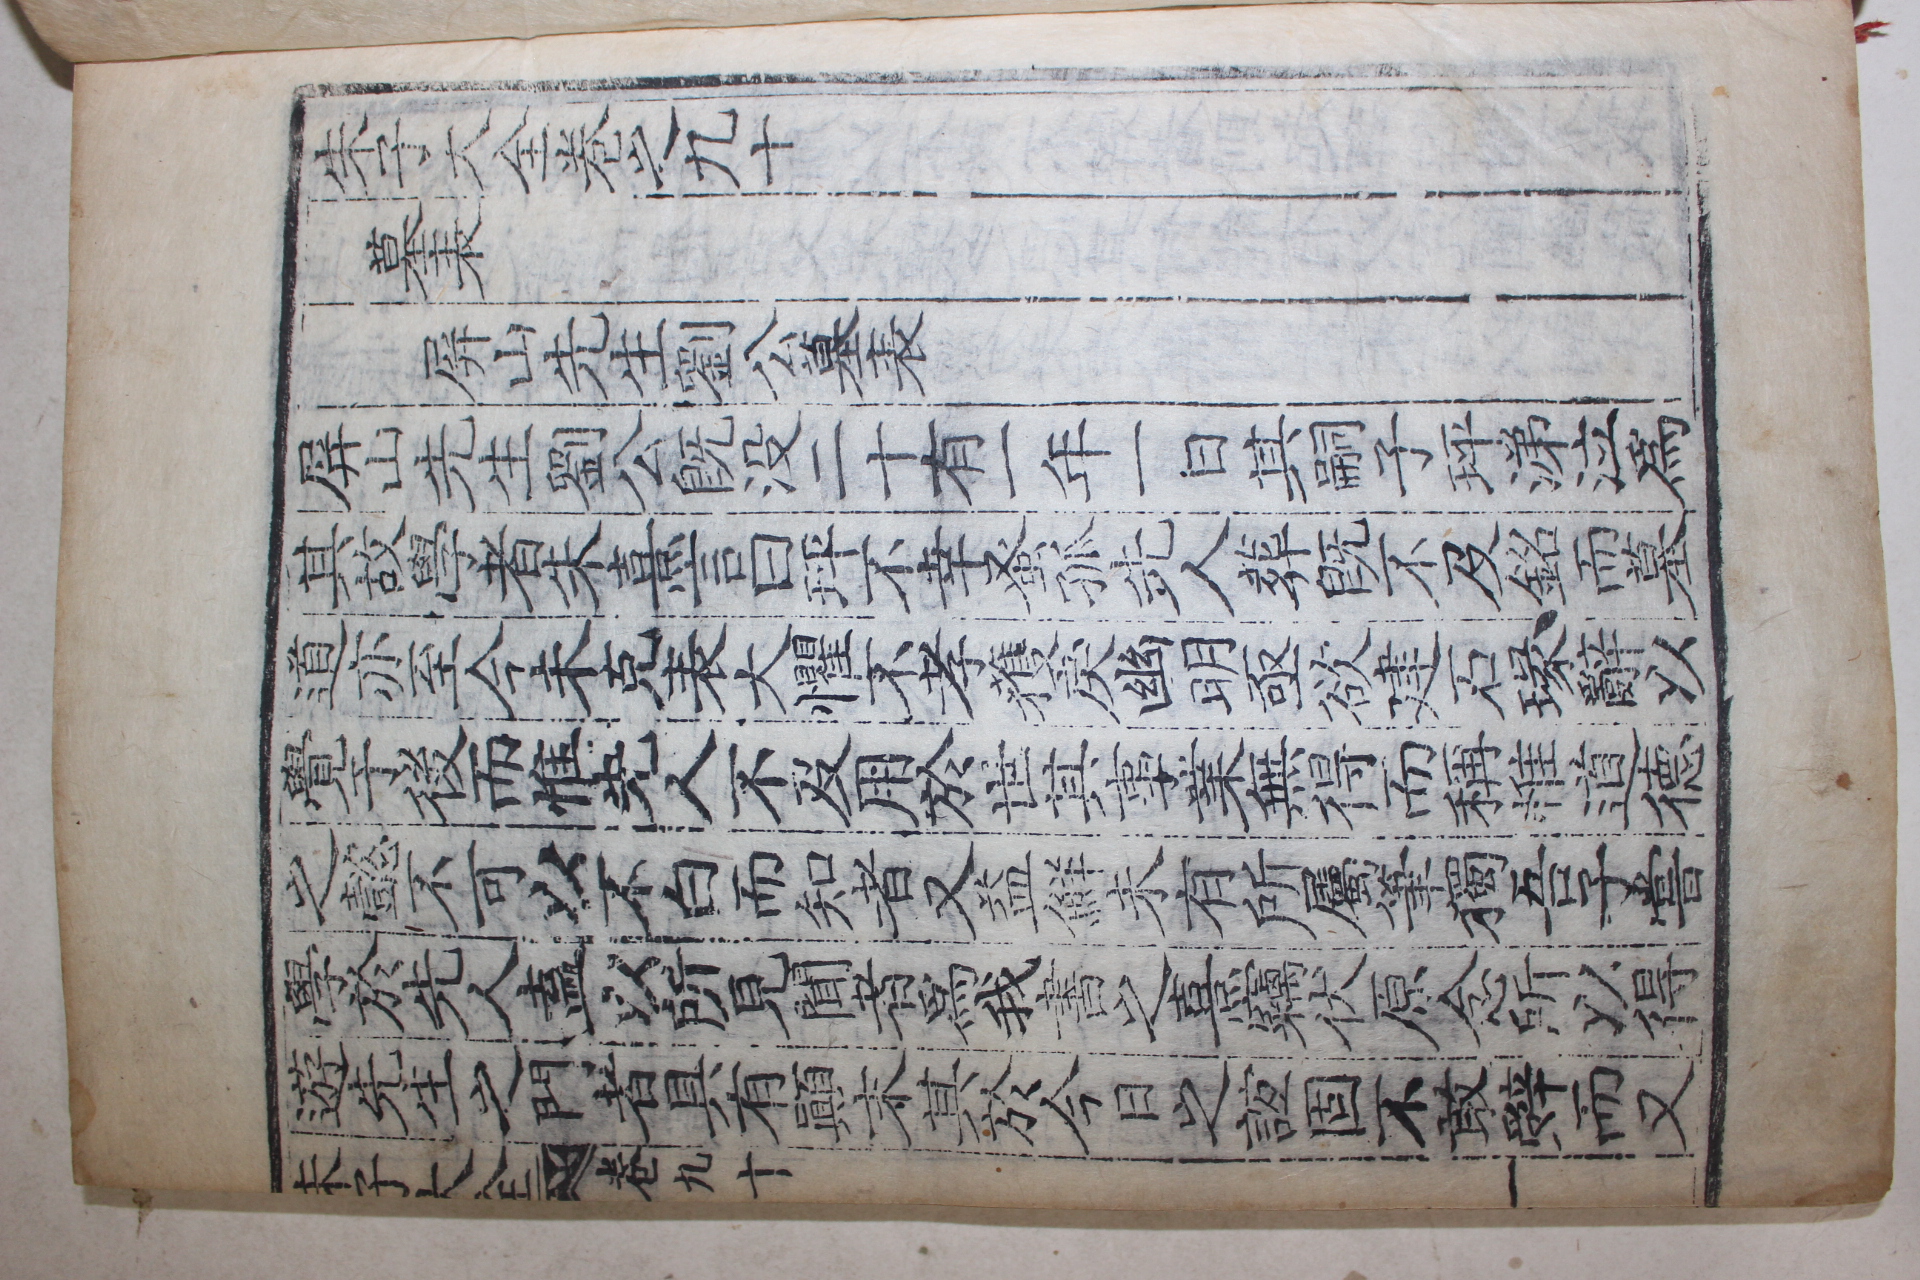 朱子大全卷之九十
墓表
屏山先生劉公墓表
屏山先生劉公旣没二十有一年一日其嗣子玶涕泣爲
其故學者朱熹言曰玶不幸蚤孤先人葬旣不及銘而墓
道亦至今未克表大懼不孝獲戾幽明亟欲建石瑑辭以
覺于後而惟先人不及用於世其事業無得而稱惟道德
之懿不可以不白而知者又益鮮未有所屬筆獨吾子嘗
學於先人盍以所見聞者爲我書之熹竊伏原念所以得
遊先生之門者具有顚末其於今日之誼固不敢辭而又
朱子大全 卷九十 一